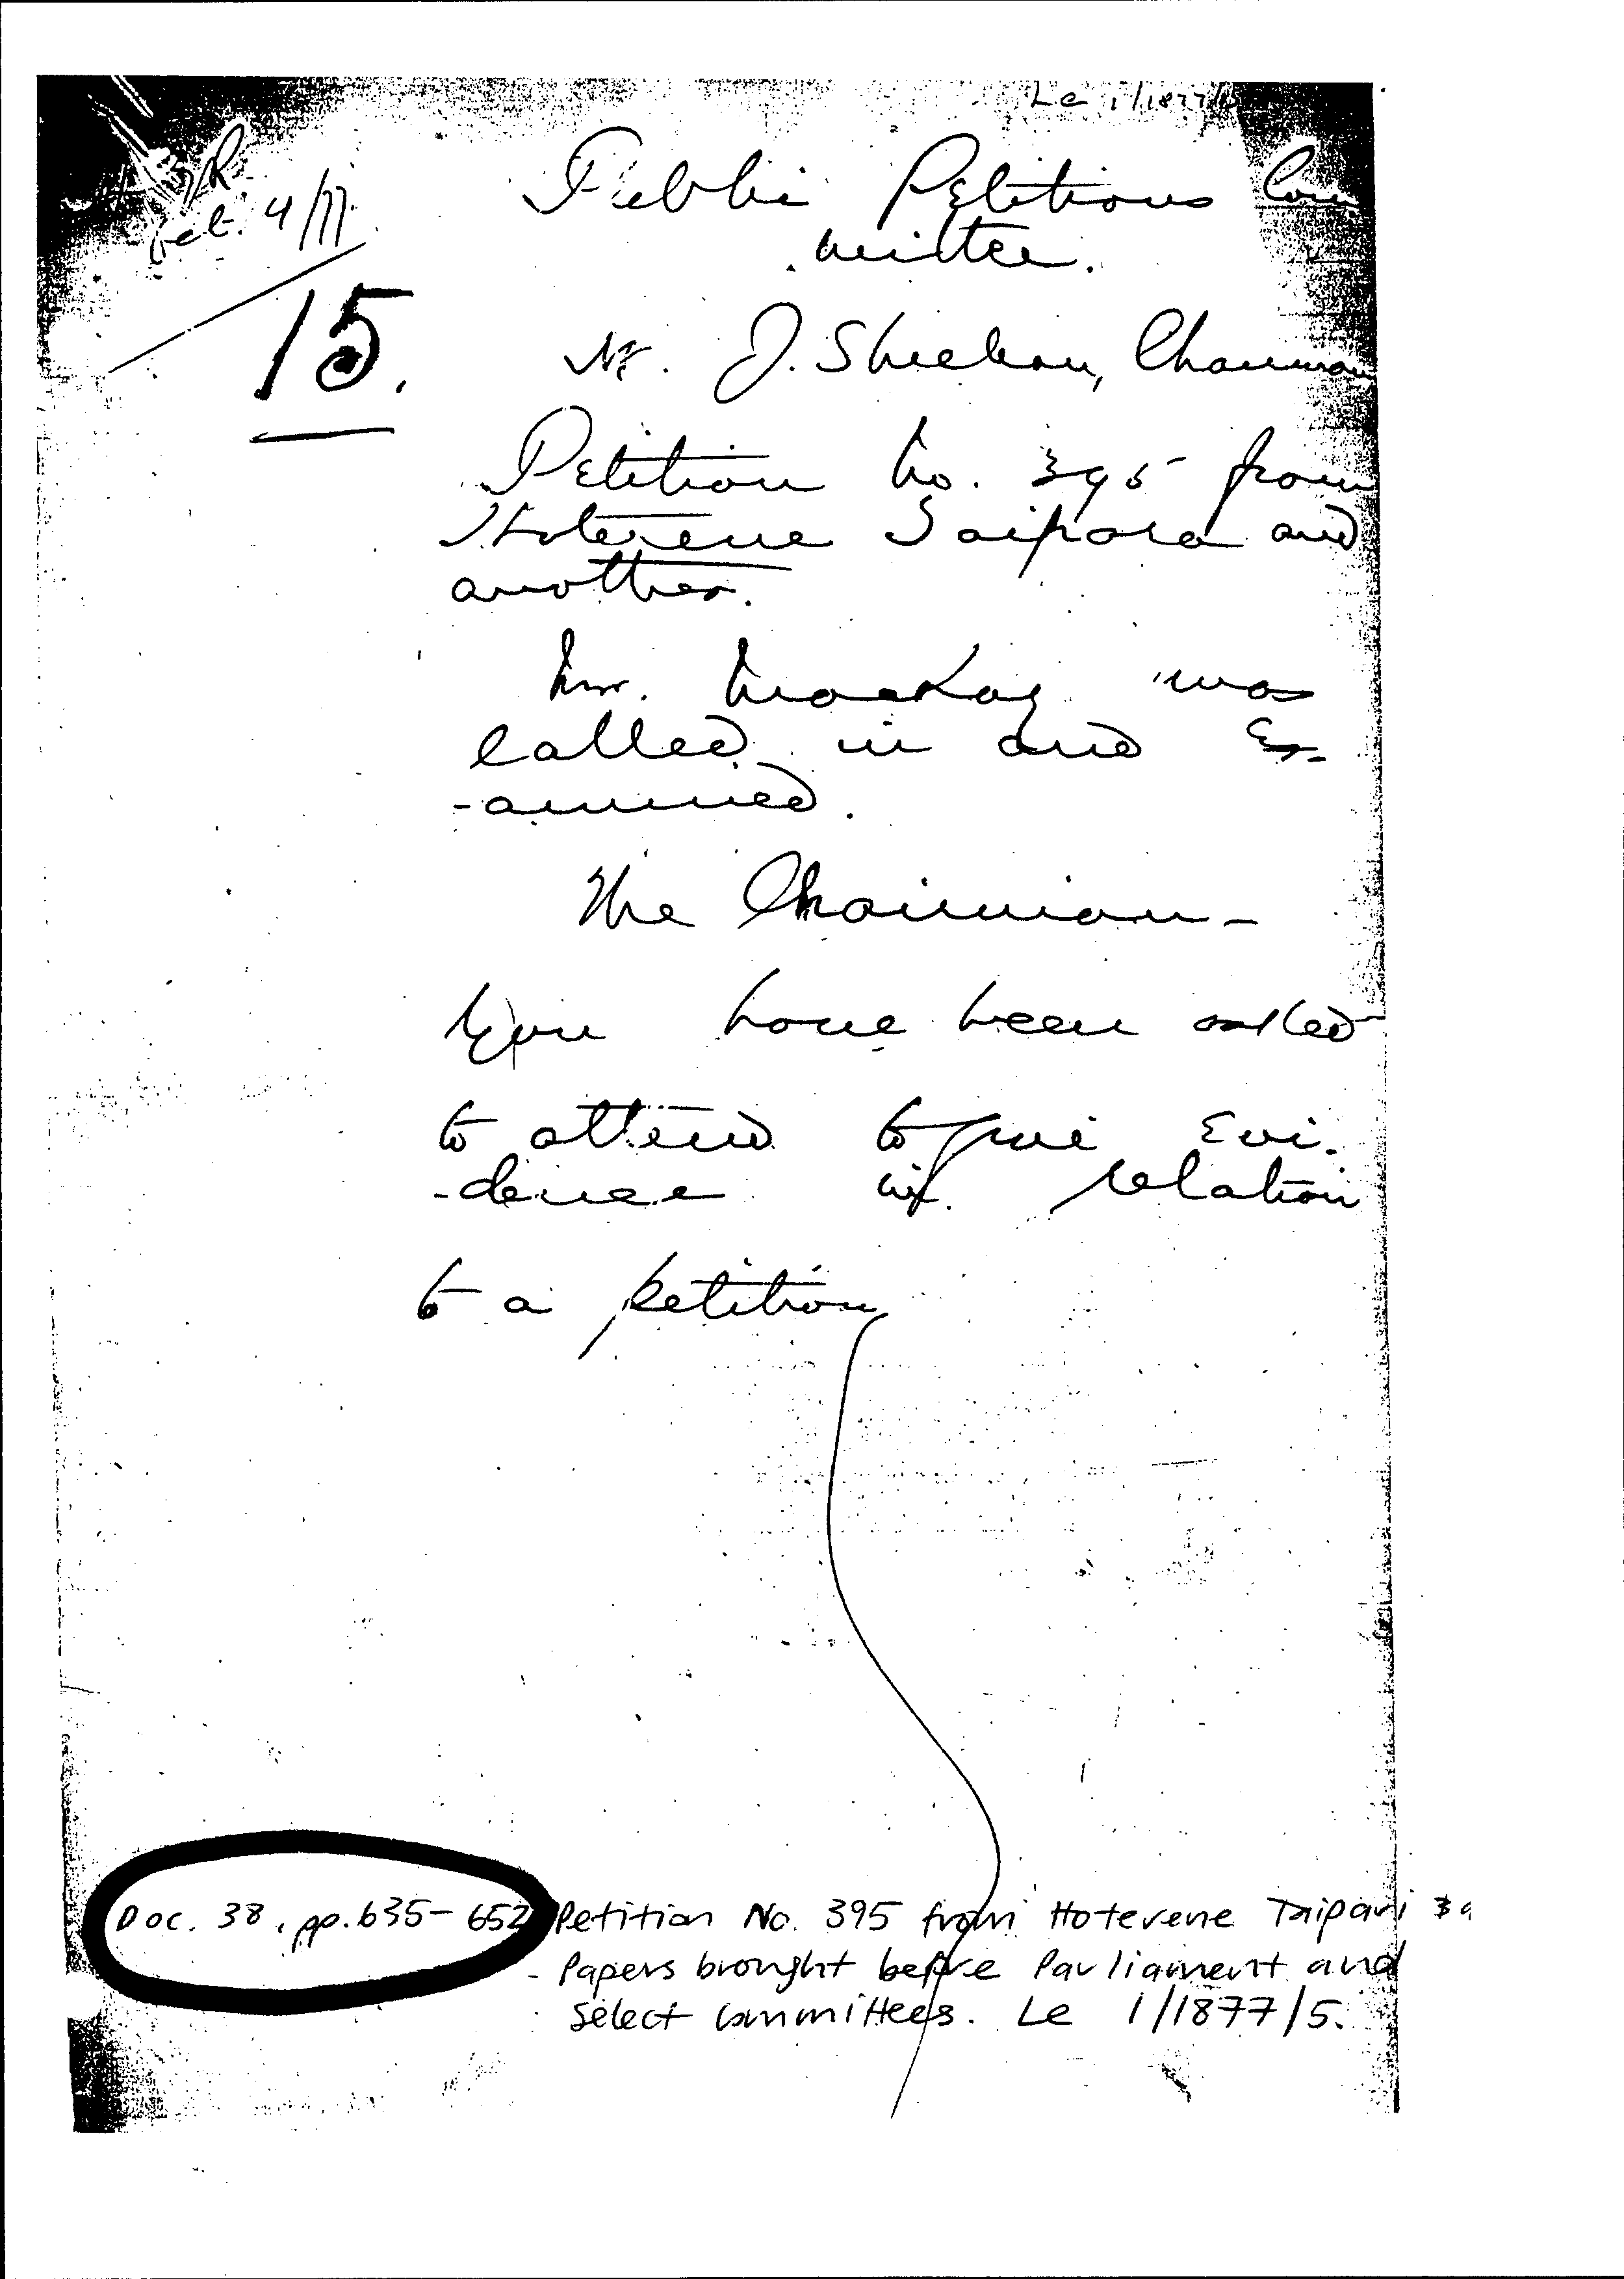 Le 1/1877/
Oct. 4/77.
15.
Public Petitions Com
mittee.
Mr. J. Sheehan, Chairman
Petition No. 395 from
Hoterene Taipara and
another.
Mr. Mackay was
called in and ex-
-amined.
The Chairman-
You have been asked
to attend to give evi-
-dence in relation
to a petition
Doc. 38, pp. 635-652 Petition No. 395 from Hoterene Taipari &
- Papers brought before Parliament and
Select committees. Le 1/1877/5.